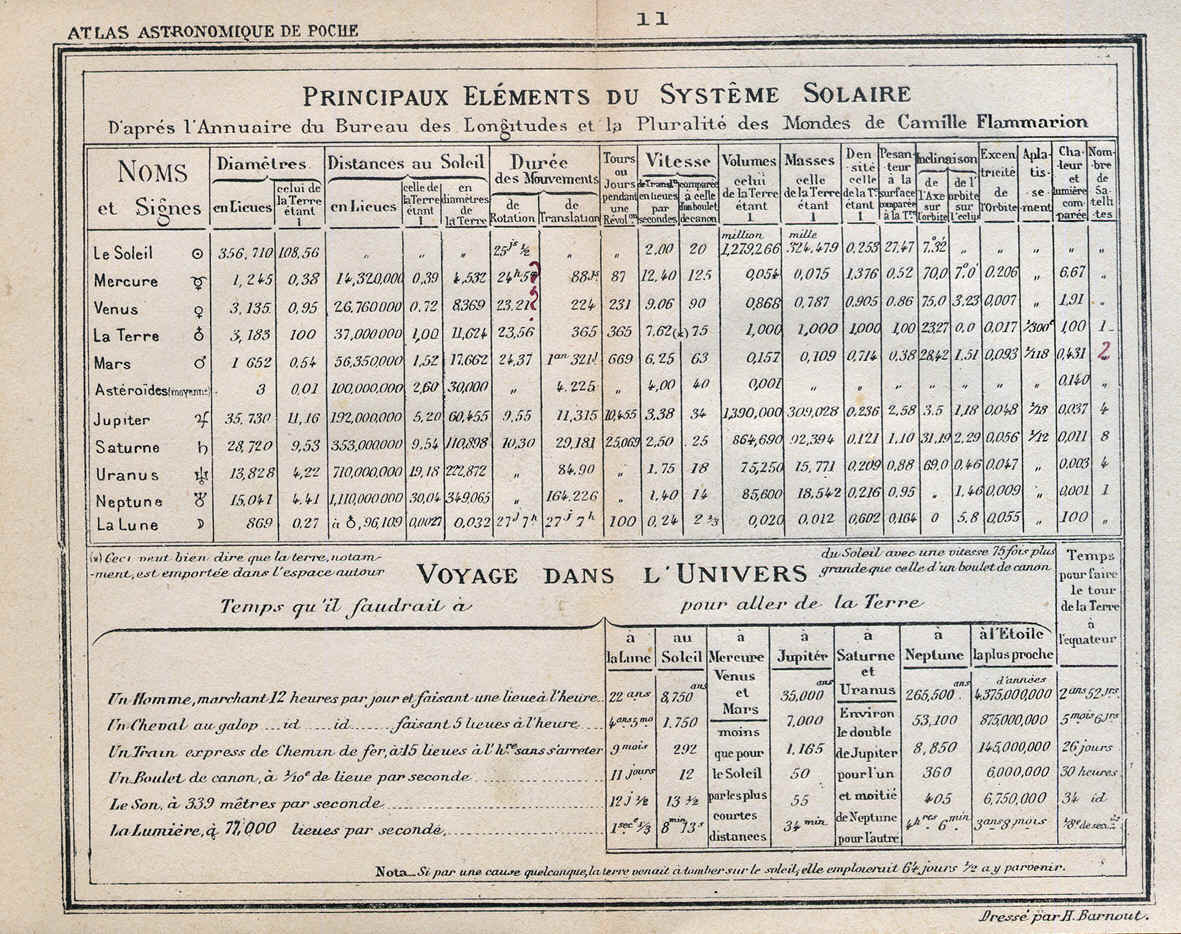 11
ATLAS ASTRONOMIQUE DE POCHE
PRINCIPAUX ELÉMENTS DU SYSTÊME SOLAIRE
D'aprés l'Annuaire du Bureau des Longitudes et la Pluralité des Mondes de Camille Flammarion
NOMS et Signes | Diamêtres en Lieues | Diamêtres celui de la Terre étant 1 | Distances au Soleil en Lieues | celle de la Terre étant 1 | en diamêtres de la Terre | Durée des Mouvements de Rotation | de Translation | Tours ou Jours pendant une Révol.on | Vitesse de Transl.on en lieues par secondes | comparée à celle d'un boulet de canon | Volumes celui de la Terre étant 1 | Masses celle de la Terre étant 1 | Densité celle de la Te. étant 1 | Pesanteur à la surface comparée à la Te. | Inclinaison de l'Axe sur l'orbite | de l'orbite sur l'eclip. | Excentricité de l'Orbite | Aplatissement | Chaleur et lumière comparée | Nombre de Satellites
Le Soleil ☉ 356,710 108,56 " " " 25js ½ " " 2.00 20 million 1,279,266 mille 324,479 0.253 27.47 7.32 " " " " "
Mercure ☿ 1,245 0,38 14,320,000 0,39 4,532 24h.5 88js 87 12.40 12.5 0,054 0,075 1,376 0.52 70,0 7.0 0.206 " 6.67 "
Venus ♀ 3.135 0,95 26.760000 0.72 8369 23.21 224 231 9.06 90 0,868 0,787 0,905 0.86 75,0 3.23 0,007 " 1,91 "
La Terre ♁ 3,183 100 37,000000 1,00 11,624 23,56 365 365 7.62(x) 75 1,000 1,000 1,000 1,00 23.27 0.0 0,017 1/300e 1,00 1
Mars ♂ 1 652 0,54 56,350000 1,52 17,662 24,37 1an 321j 669 6,25 63 0,157 0,109 0,714 0,38 28,42 1.51 0,093 1/118 0,431 2
Astéroïdes (moyenne) 3 0,01 100,000,000 2,60 30,000 " 4.225 " 4,00 40 0,001 " " " " " " " 0.140 "
Jupiter ♃ 35,730 11,16 192,000,000 5,20 60,455 9,55 11,315 10,455 3,38 34 1,390,000 309,028 0,236 2,58 3.5 1,18 0,048 1/18 0,037 4
Saturne ♄ 28,720 9,53 353,000000 9.54 110,898 10,30 29,181 25,069 2,50 25 864,690 92,394 0,121 1.10 31,19 2.29 0,056 1/12 0,011 8
Uranus ♅ 13,828 4,22 710,000000 19,18 222,872 " 84.90 " 1.75 18 75,250 15,771 0,209 0,88 69,0 0,46 0,047 " 0,003 4
Neptune 15,041 4.41 1,110,000000 30,04 349065 " 164.226 " 1,40 14 85,600 18,542 0,216 0,95 " 1.46 0,009 " 0,001 1
La Lune ☽ 869 0.27 à ♁, 96,109 0,0027 0,032 27j 7h 27j 7h 100 0,24 2 ⅔ 0,020 0,012 0,602 0,164 0 5.8 0,055 " 100 "
(x) Ceci peut bien dire que la terre, notam-
-ment, est emportée dans l'espace autour
du Soleil avec une vitesse 75 fois plus
grande que celle d'un boulet de canon
VOYAGE DANS L'UNIVERS
Temps qu'il faudrait à pour aller de la Terre
à la Lune | au Soleil | à Mercure Venus et Mars | à Jupitér | à Saturne et Uranus | à Neptune | à l'Etoile la plus proche | Temps pour faire le tour de la Terre à l'equateur
Un Homme, marchant 12 heures par jour et faisant une lieue à l'heure 22 ans 8,750 ans 35,000 ans 265,500 ans d'années 4,375,000,000 2 ans 52 jrs
Un Cheval au galop id id faisant 5 lieues à l'heure 4 ans 5 mo 1.750 7,000 53,100 875,000,000 5 mois 6 jrs
Un Train express de Chemin de fer, à 15 lieues à l'hre sans s'arreter 9 mois 292 1,165 8,850 145,000,000 26 jours
Un Boulet de canon, à 1/10e de lieue par seconde 11 jours 12 50 360 6,000,000 30 heures
Le Son, à 339 mêtres par seconde 12 j ½ 13 ½ 55 405 6,750,000 34 id
La Lumière, à 77,000 lieues par seconde, 1 sece ⅓ 8 min 13 s 34 min 4 hres 6 min 3 ans 8 mois 1/8e de sec
moins que pour le Soleil par les plus courtes distances
Environ le double de Jupiter pour l'un et moitié de Neptune pour l'autre
Nota_Si par une cause quelconque, la terre venait à tomber sur le soleil, elle emploierait 64 jours ½ a y parvenir.
Dressé par H. Barnout.